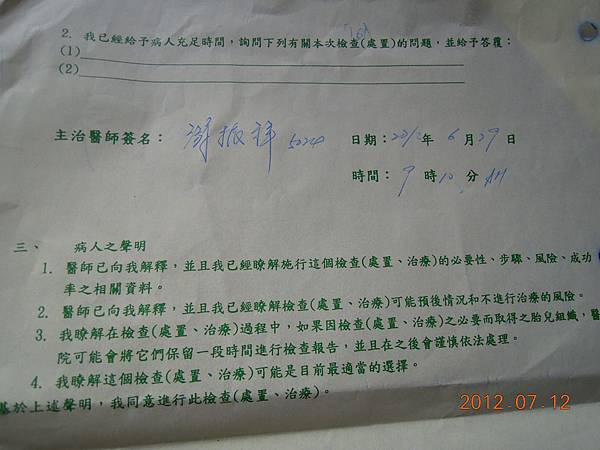 2. 我已經給予病人充足時間，詢問下列有關本次檢查(處置)的問題，並給予答覆：
(1)
(2)
主治醫師簽名： 謝振祥 5024 日期：2012年 6 月 29 日
時間： 9 時 10 分 AM
三、 病人之聲明
1. 醫師已向我解釋，並且我已經瞭解施行這個檢查(處置、治療)的必要性、步驟、風險、成功
率之相關資料。
2. 醫師已向我解釋，並且我已經瞭解檢查(處置、治療)可能預後情況和不進行治療的風險。
3. 我瞭解在檢查(處置、治療)過程中，如果因檢查(處置、治療)之必要而取得之胎兒組織，醫
院可能會將它們保留一段時間進行檢查報告，並且在之後會謹慎依法處理。
4. 我瞭解這個檢查(處置、治療)可能是目前最適當的選擇。
基於上述聲明，我同意進行此檢查(處置、治療)。
2012-07-12